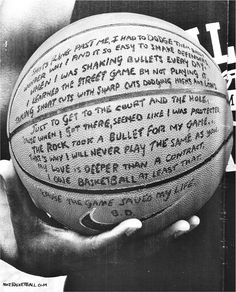 SHOTS FLUNG PAST ME, I HAD TO DODGE THEM AND
WONDER WHY I FIND IT SO EASY TO SHAKE DEFENDERS
WHEN I WAS SHAKING BULLETS EVERY DAY.
I LEARNED THE STREET GAME BY NOT PLAYING IT
TAKING SHORT CUTS WITH SHARP CUTS DODGING HIGHS AND LOWS
JUST TO GET TO THE COURT AND THE HOLE,
WHEN I GOT THERE, SEEMED LIKE I WAS PROTECTED
THE ROCK TOOK A BULLET FOR MY GAME,
THAT'S WHY I WILL NEVER PLAY THE SAME AS YOU
MY LOVE IS DEEPER THAN A CONTRACT,
ONE BASKETBALL AT LEAST THAT,
'CAUSE THE GAME SAVED MY LIFE.
B.D.
NIKEBASKETBALL.COM